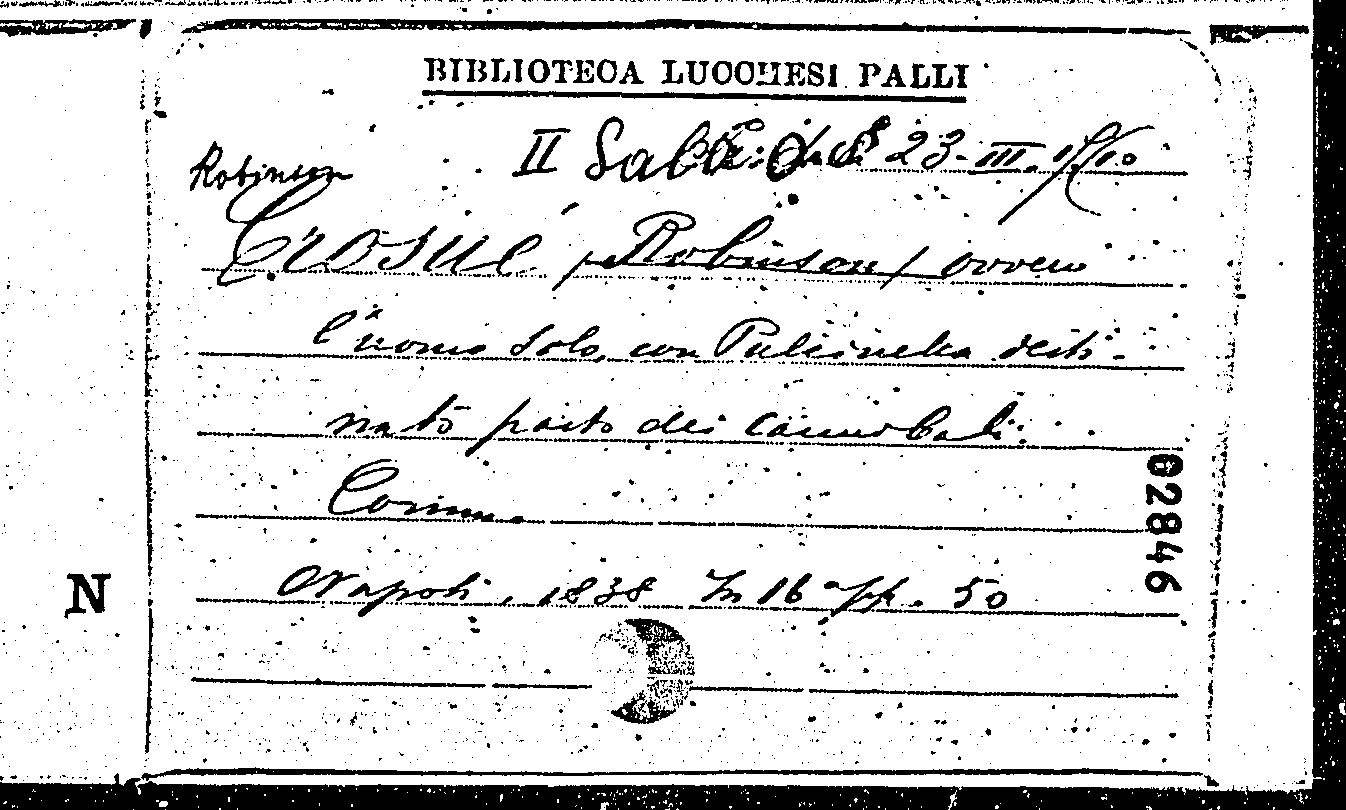 BIBLIOTECA LUCCHESI PALLI
II Sala 23. III.
Robinson
Crosué (Robinson) ovvero
l'uomo solo, con Pulcinella desti-
nato pasto dei cannibali.
Comm.
Napoli, 1838 In 16° pp. 50
02846
N